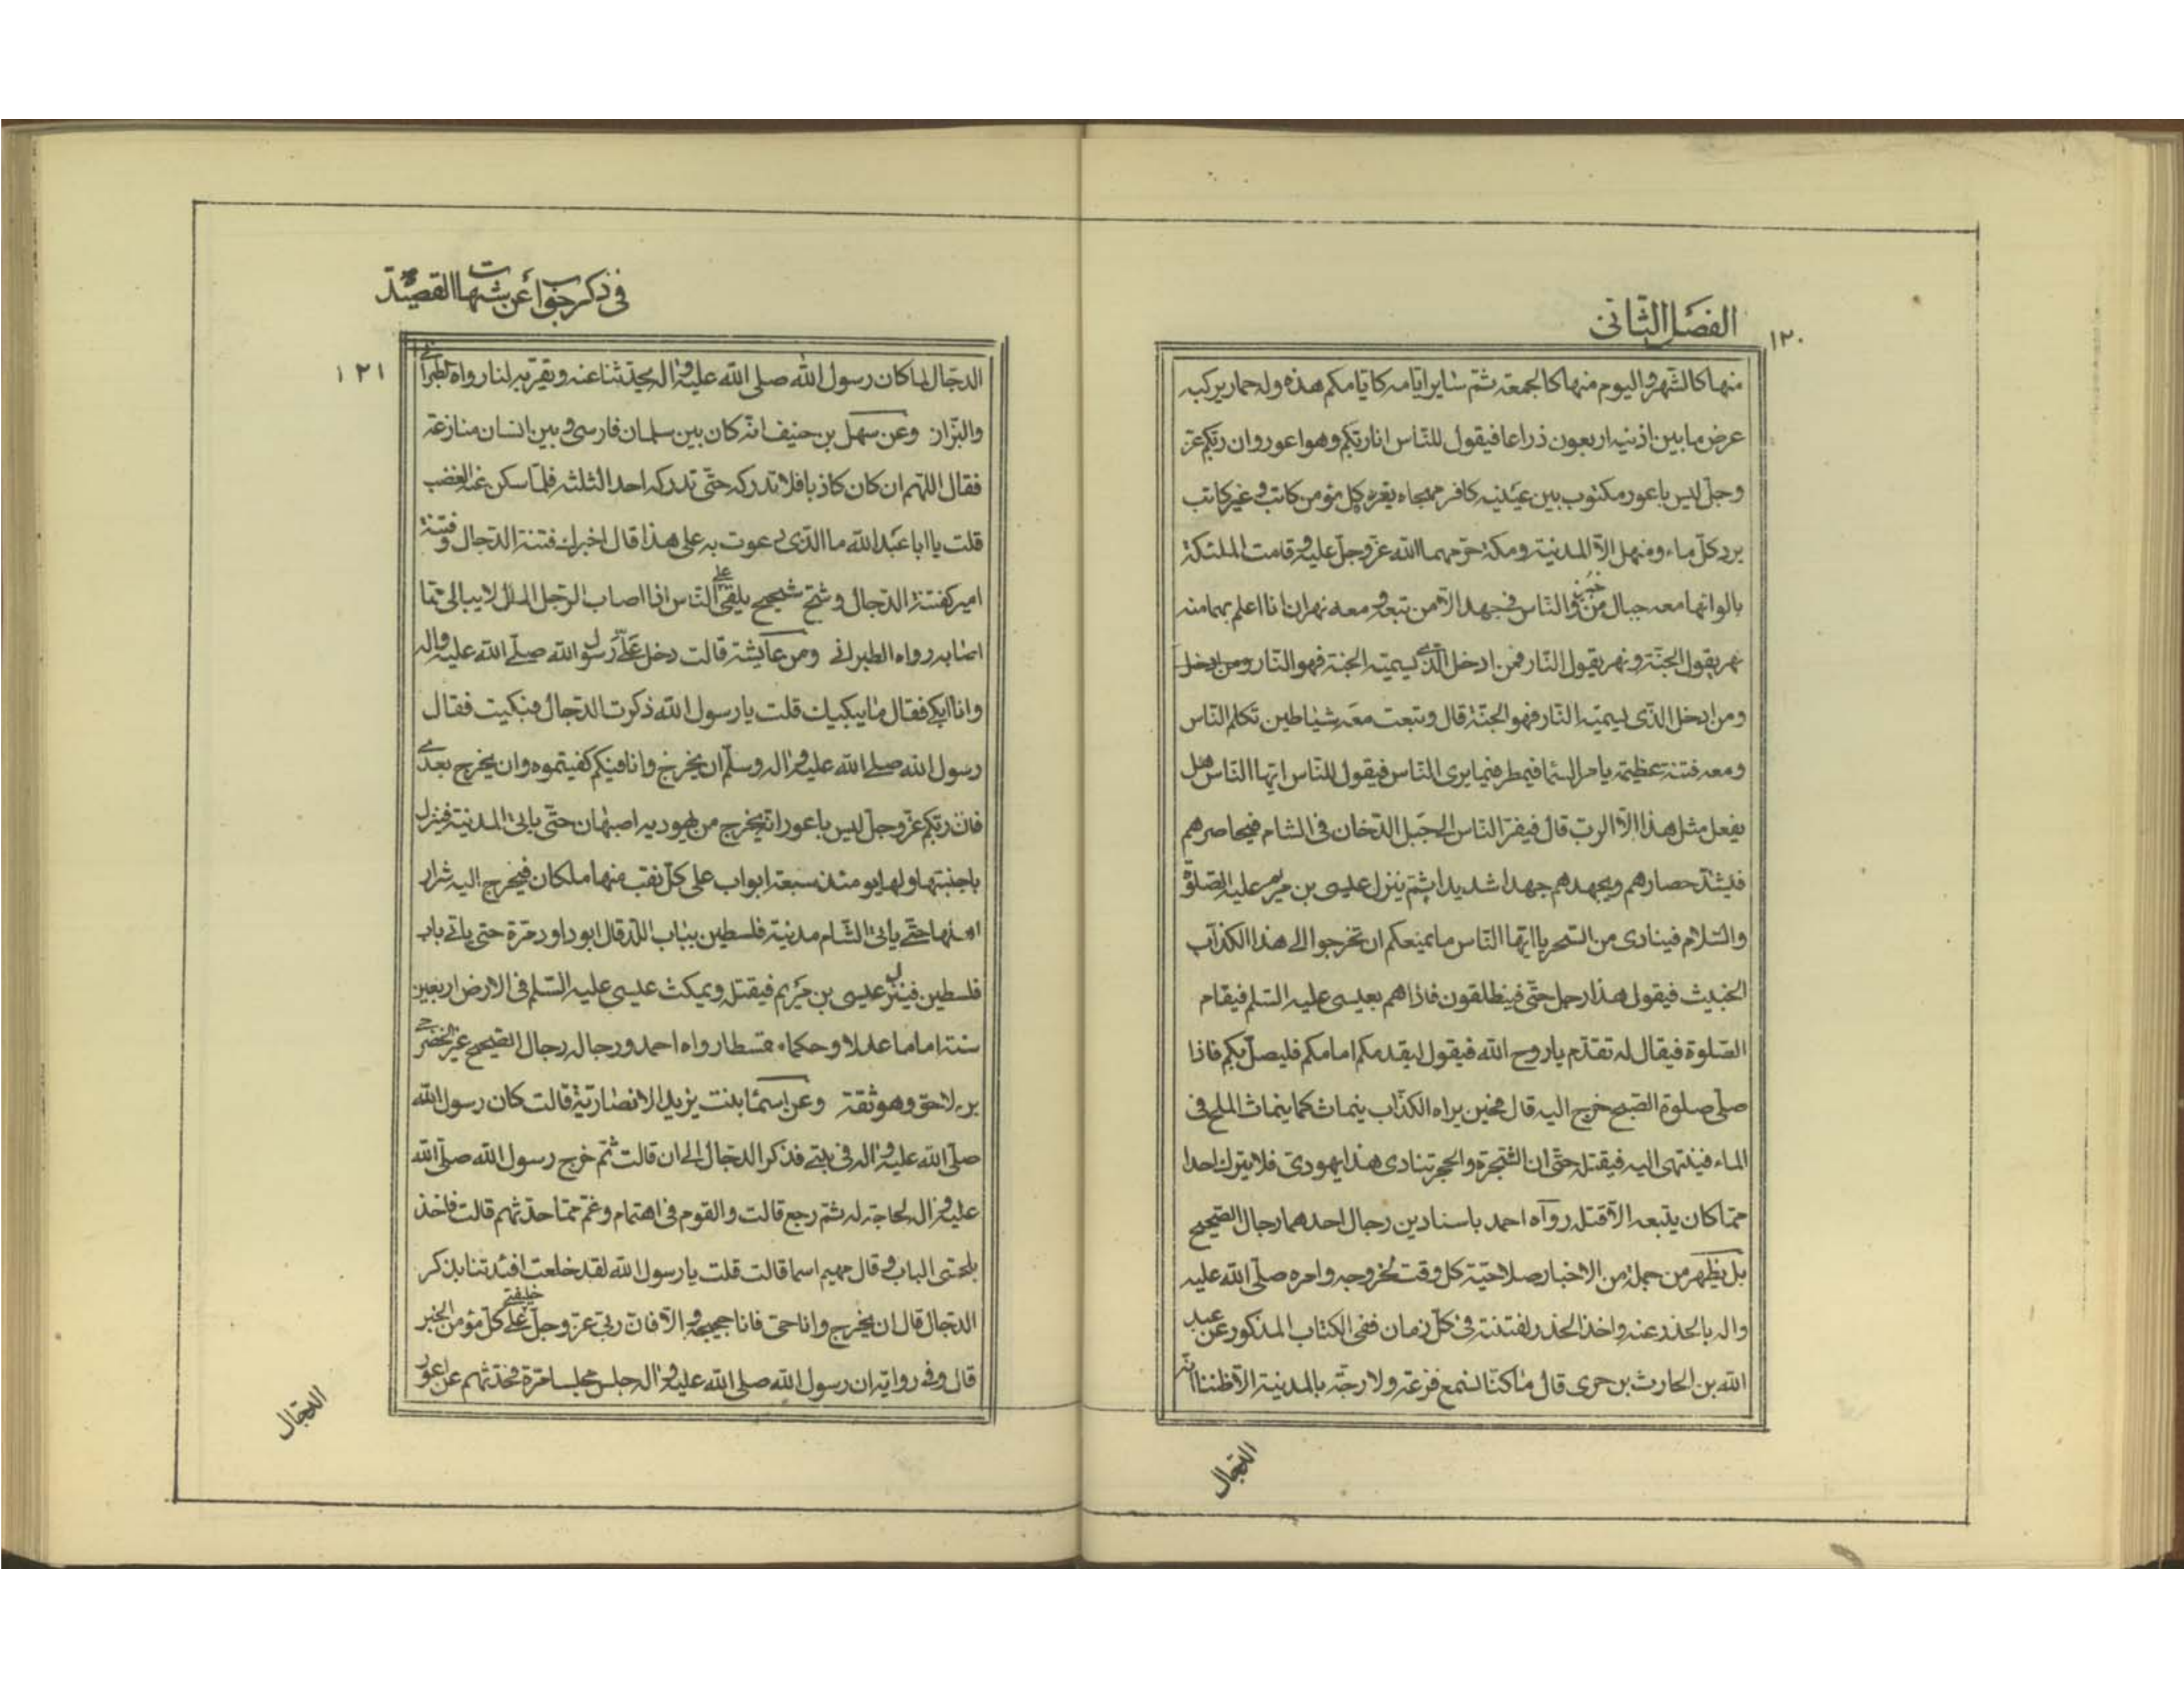 الفصل الثانی
١٢٠
منها کالشهر والیوم منها کالجمعة ثم سایر ایامه کایامکم هذه وله حمار یرکبه
عرض ما بین اذنیه اربعون ذراعا فیقول للناس انا ربکم وهو اعور وان ربکم عز
وجل لیس باعور مکتوب بین عینیه کافر مهجاه یقره کل مؤمن کاتب و غیر کاتب
یرد کل ماء ومنهل الا المدینة ومکة حرمهما الله عز وجل علیه وقامت الملئکة
بابوابها معه جبال من خبز والناس فی جهد الا من تبعه ومعه نهران انا اعلم بهما منه
نهر یقول الجنة ونهر یقول النار فمن ادخل الذی یسمیه الجنة فهو النار ومن ادخل
ومن ادخل الذی یسمیه النار فهو الجنة قال وتبعث معه شیاطین تکلم الناس
ومعه فتنة عظیمة یامر السما فیمطر فیما یری الناس فیقول للناس ایها الناس هل
یفعل مثل هذا الا الرب قال فیفر الناس الی جبل الدخان فی الشام فیحاصرهم
فیشتد حصارهم ویجهدهم جهدا شدیدا ثم ینزل عیسی بن مریم علیه الصلوة
والسلام فینادی من السحر یا ایها الناس ما یمنعکم ان تخرجوا الی هذا الکذاب
الخبیث فیقول هذا رجل حتی فینطلقون فاذا هم بعیسی علیه السلم فیقام
الصلوة فیقال له تقدم یا روح الله فیقول لیقدمکم امامکم فلیصل بکم فاذا
صلی صلوة الصبح خرج الیه قال فحین یراه الکذاب ینماث کما ینماث الملح فی
الماء فینتهی الیه فیقتله حتی ان الشجرة والحجر تنادی هذا یهودی فلا یترک احدا
مما کان یتبعه الا قتله رواه احمد باسنادین رجال احدهما رجال الصحیح
بل یظهر من جملة من الاخبار صلاحیة کل وقت لخروجه وامره صلی الله علیه
واله بالحذر عنه واخذ الحذر لفتنته فی کل زمان ففی الکتاب المذکور عن عبد
الله بن الحارث بن جزی قال ما کنا نسمع فزعة ولا رجة بالمدینة الا ظننا انه
الدجال
فی ذکر جواب عن شبهات القصیدة
١٢١
الدجال لما کان رسول الله صلی الله علیه واله یحدثنا عنه ویقربه لنا رواه الطبرانی
والبزار وعن سهل بن حنیف انه کان بین سلمان فارسی و بین انسان منازعة
فقال اللهم ان کان کاذبا فلا تدرکه حتی تدرکه احد الثلثه فلما سکن عنه الغضب
قلت یا ابا عبد الله ما الذی دعوت به علی هذا قال اخبرک فتنة الدجال وفتنة
امیر کفتنة الدجال وشح شحیح یلقی علی الناس اذا اصاب الرجل المال لا یبالی مما
اصابه رواه الطبرانی ومن عایشة قالت دخل علی رسول الله صلی الله علیه واله
وانا ابکی فقال ما یبکیک قلت یا رسول الله ذکرت الدجال فبکیت فقال
رسول الله صلی الله علیه واله وسلم ان یخرج وانا فیکم کفیتموه وان یخرج بعدی
فان ربکم عز وجل لیس باعور انه یخرج من یهودیه اصبهان حتی یاتی المدینة فینزل
باجنبتها ولها یومئذ سبعة ابواب علی کل نقب منها ملکان فیخرج الیه شرار
اهلها حتی یاتی الشام مدینة فلسطین بباب اللد قال ابو داود مرة حتی یاتی باب
فلسطین فینزل عیسی بن مریم فیقتله ویمکث عیسی علیه السلم فی الارض اربعین
سنة اماما عدلا وحکماء مقسطا رواه احمد ورجاله رجال الصحیح غیر الحضرمی
بن لاحق وهو ثقة وعن اسما بنت یزید الانصاریة قالت کان رسول الله
صلی الله علیه واله فی بیتی فذکر الدجال الی ان قالت ثم خرج رسول الله صلی الله
علیه واله لحاجة له ثم رجع قالت والقوم فی اهتمام وغم مما حدثهم قالت فاخذ
بلحمتی الباب وقال مهیم اسما قالت قلت یا رسول الله لقد خلعت افئدتنا بذکر
الدجال قال ان یخرج وانا حی فانا حجیجه والا فان ربی عز وجل خلیفتی علی کل مؤمن الخبر
قال وفی روایة ان رسول الله صلی الله علیه واله جلس مجلسا مرة فحدثهم عن اعور
الدجال